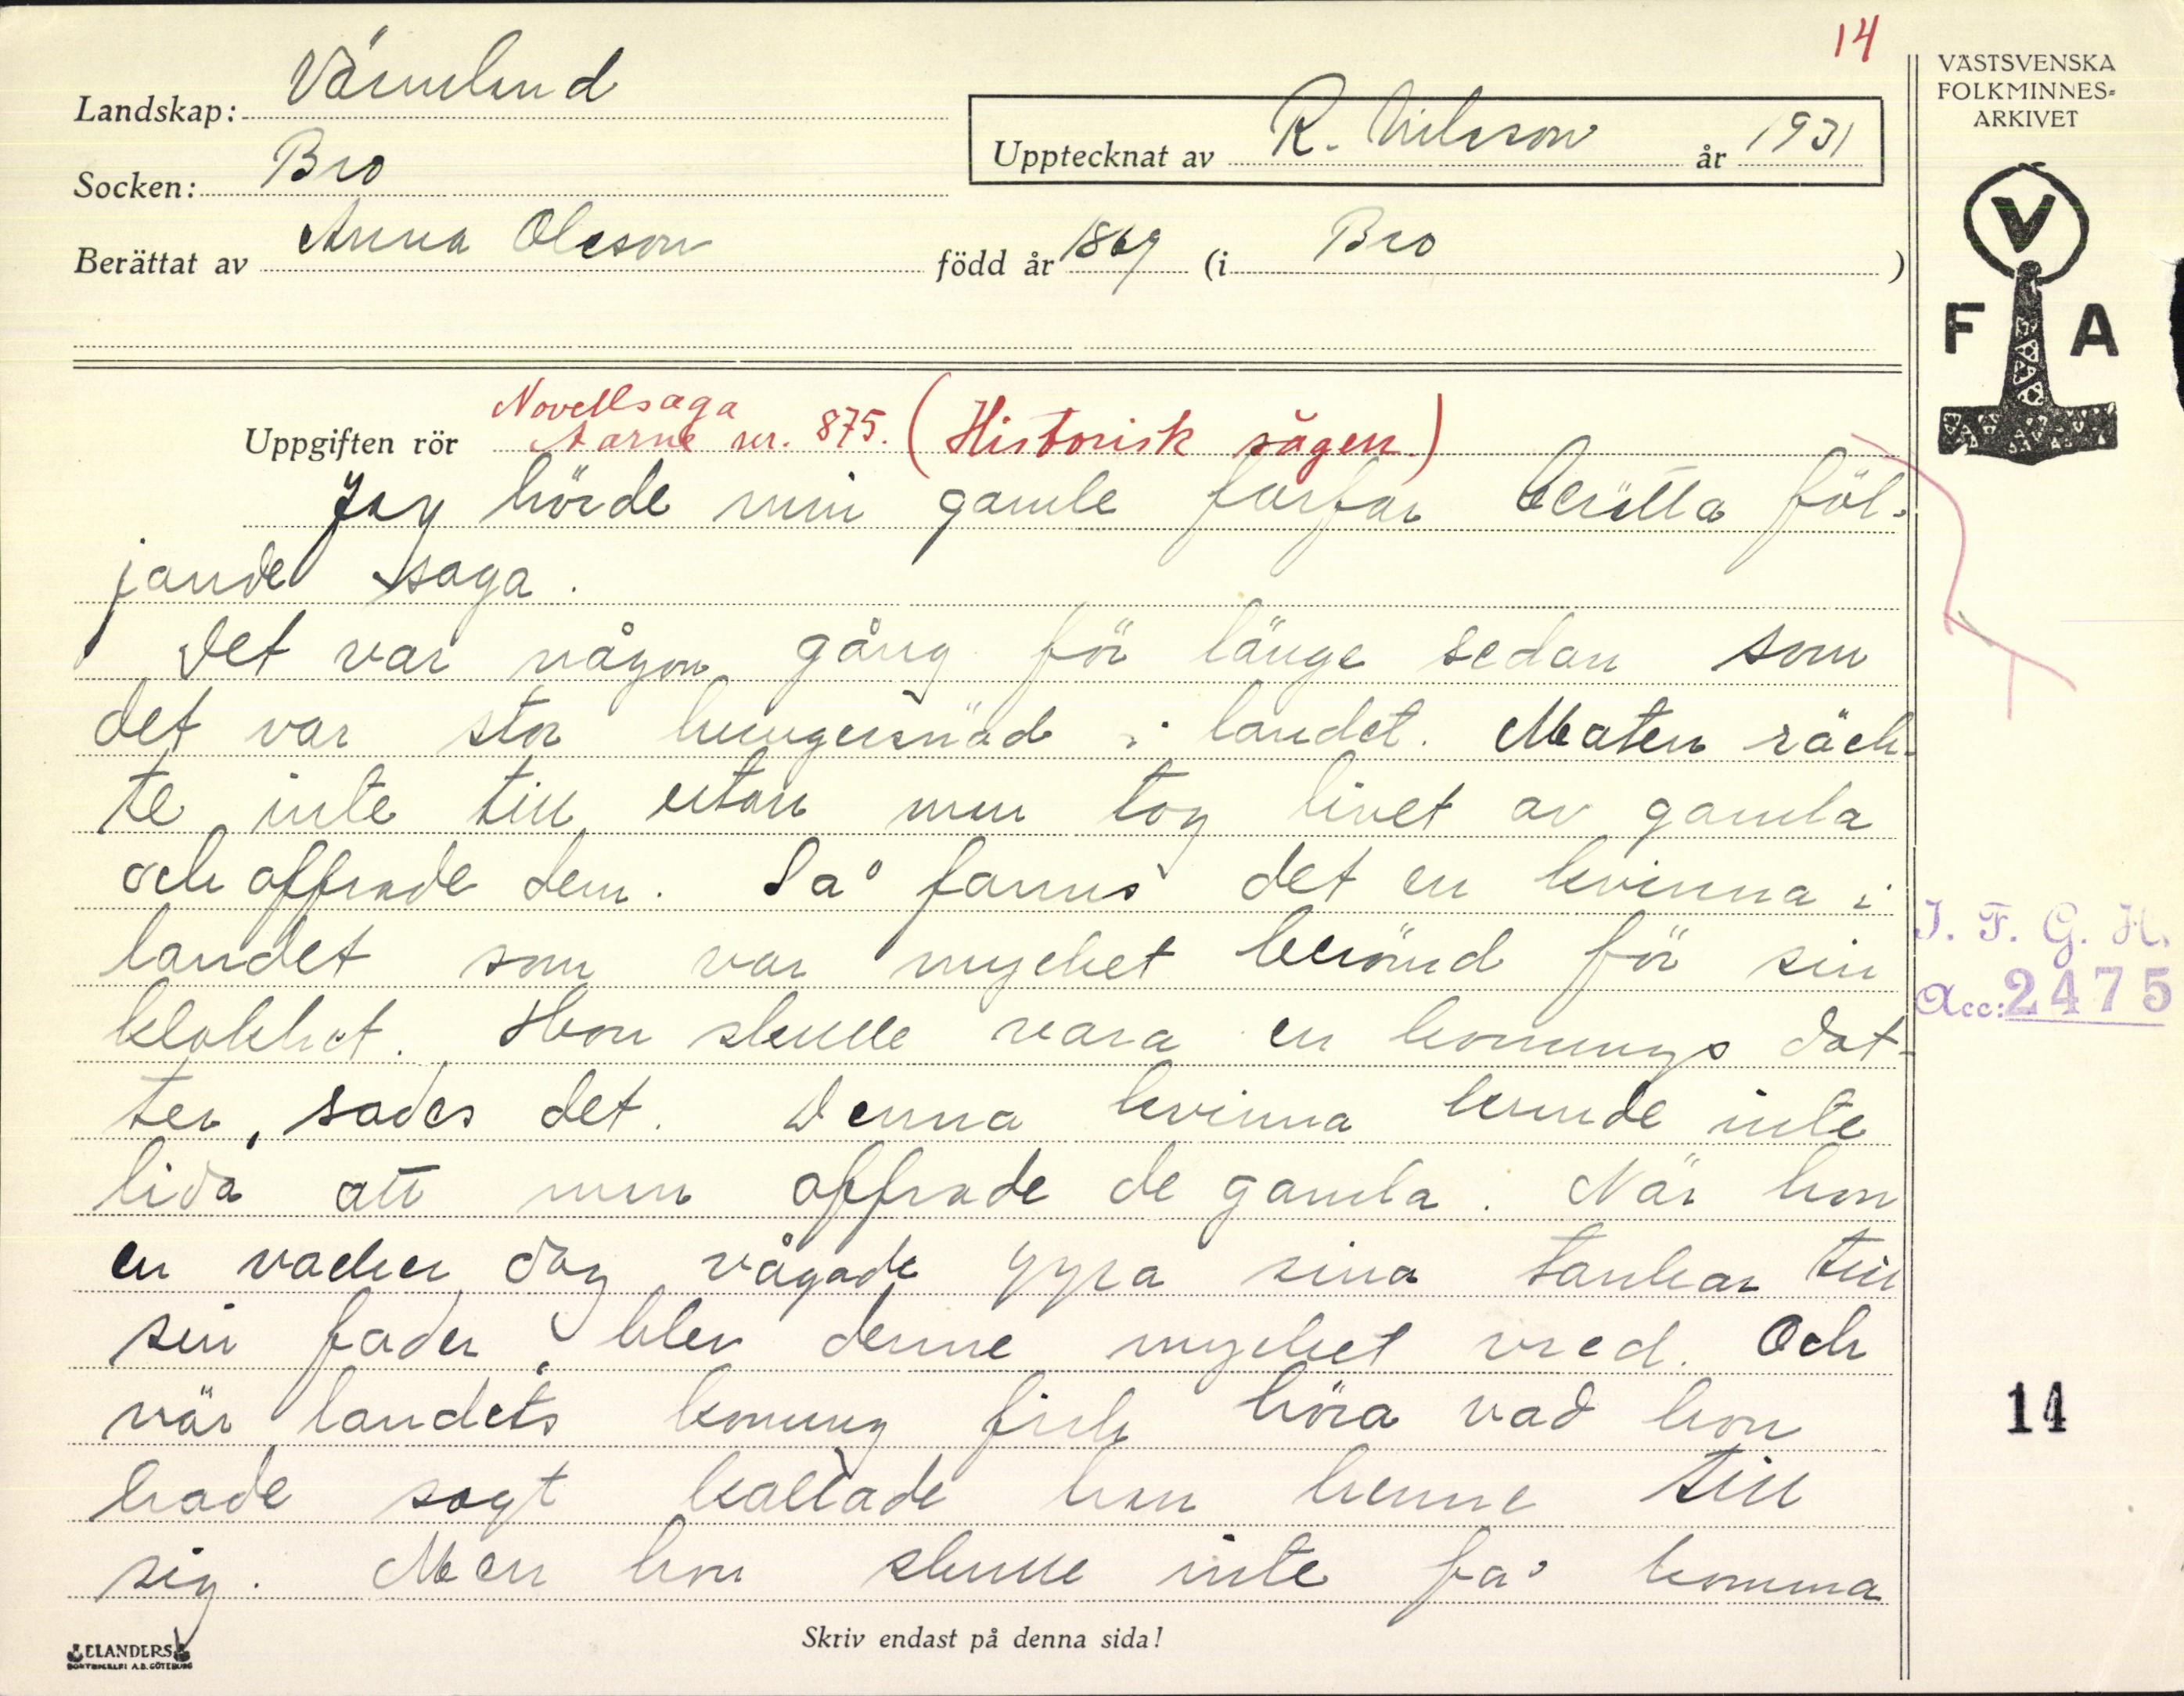 14
Landskap: Värmland
Socken: Bro
Upptecknat av R. Nilsson år 1931
Berättat av Anna Olsson född år 1869 (i Bro)
VÄSTSVENSKA
FOLKMINNES-
ARKIVET
V
F A
Novellsaga
Uppgiften rör Aarne nr. 875. (Historisk sägen.)
Jag hörde min gamle farfar berätta föl-
jande saga.
Det var någon gång för länge sedan som
det var stor hungersnöd i landet. Maten räck-
te inte till utan man tog livet av gamla
och offrade dem. Så fanns det en kvinna i
landet som var mycket berömd för sin
klokhet. Hon skulle vara en konungs dot-
ter, sades det. Denna kvinna kunde inte
lida att man offrade de gamla. När hon
en vacker dag vågade yppa sina tankar till
sin fader, blev denne mycket vred. Och
när landets konung fick höra vad hon
hade sagt kallade han henne till
sig. Men hon skulle inte få komma
I. F. G. H.
Acc: 2475
14
Skriv endast på denna sida!
ELANDERS
BOKTRYCKERI A.B. GÖTEBORG